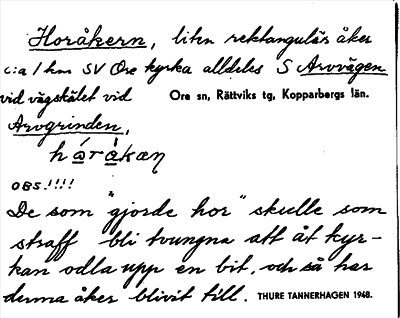 Horåkern, liten rektangulär åker
c:a 1 km SV Ore kyrka alldeles S Arvvägen
vid vägskälet vid Ore sn, Rättviks tg, Kopparbergs län.
Arvgrinden,
hå̀rå̀kæṇ
OBS.!!!!
De som "gjorde hor" skulle som
straff bli tvungna att åt kyr-
kan odla upp en bit, och så har
denna åker blivit till. THURE TANNERHAGEN 1948.